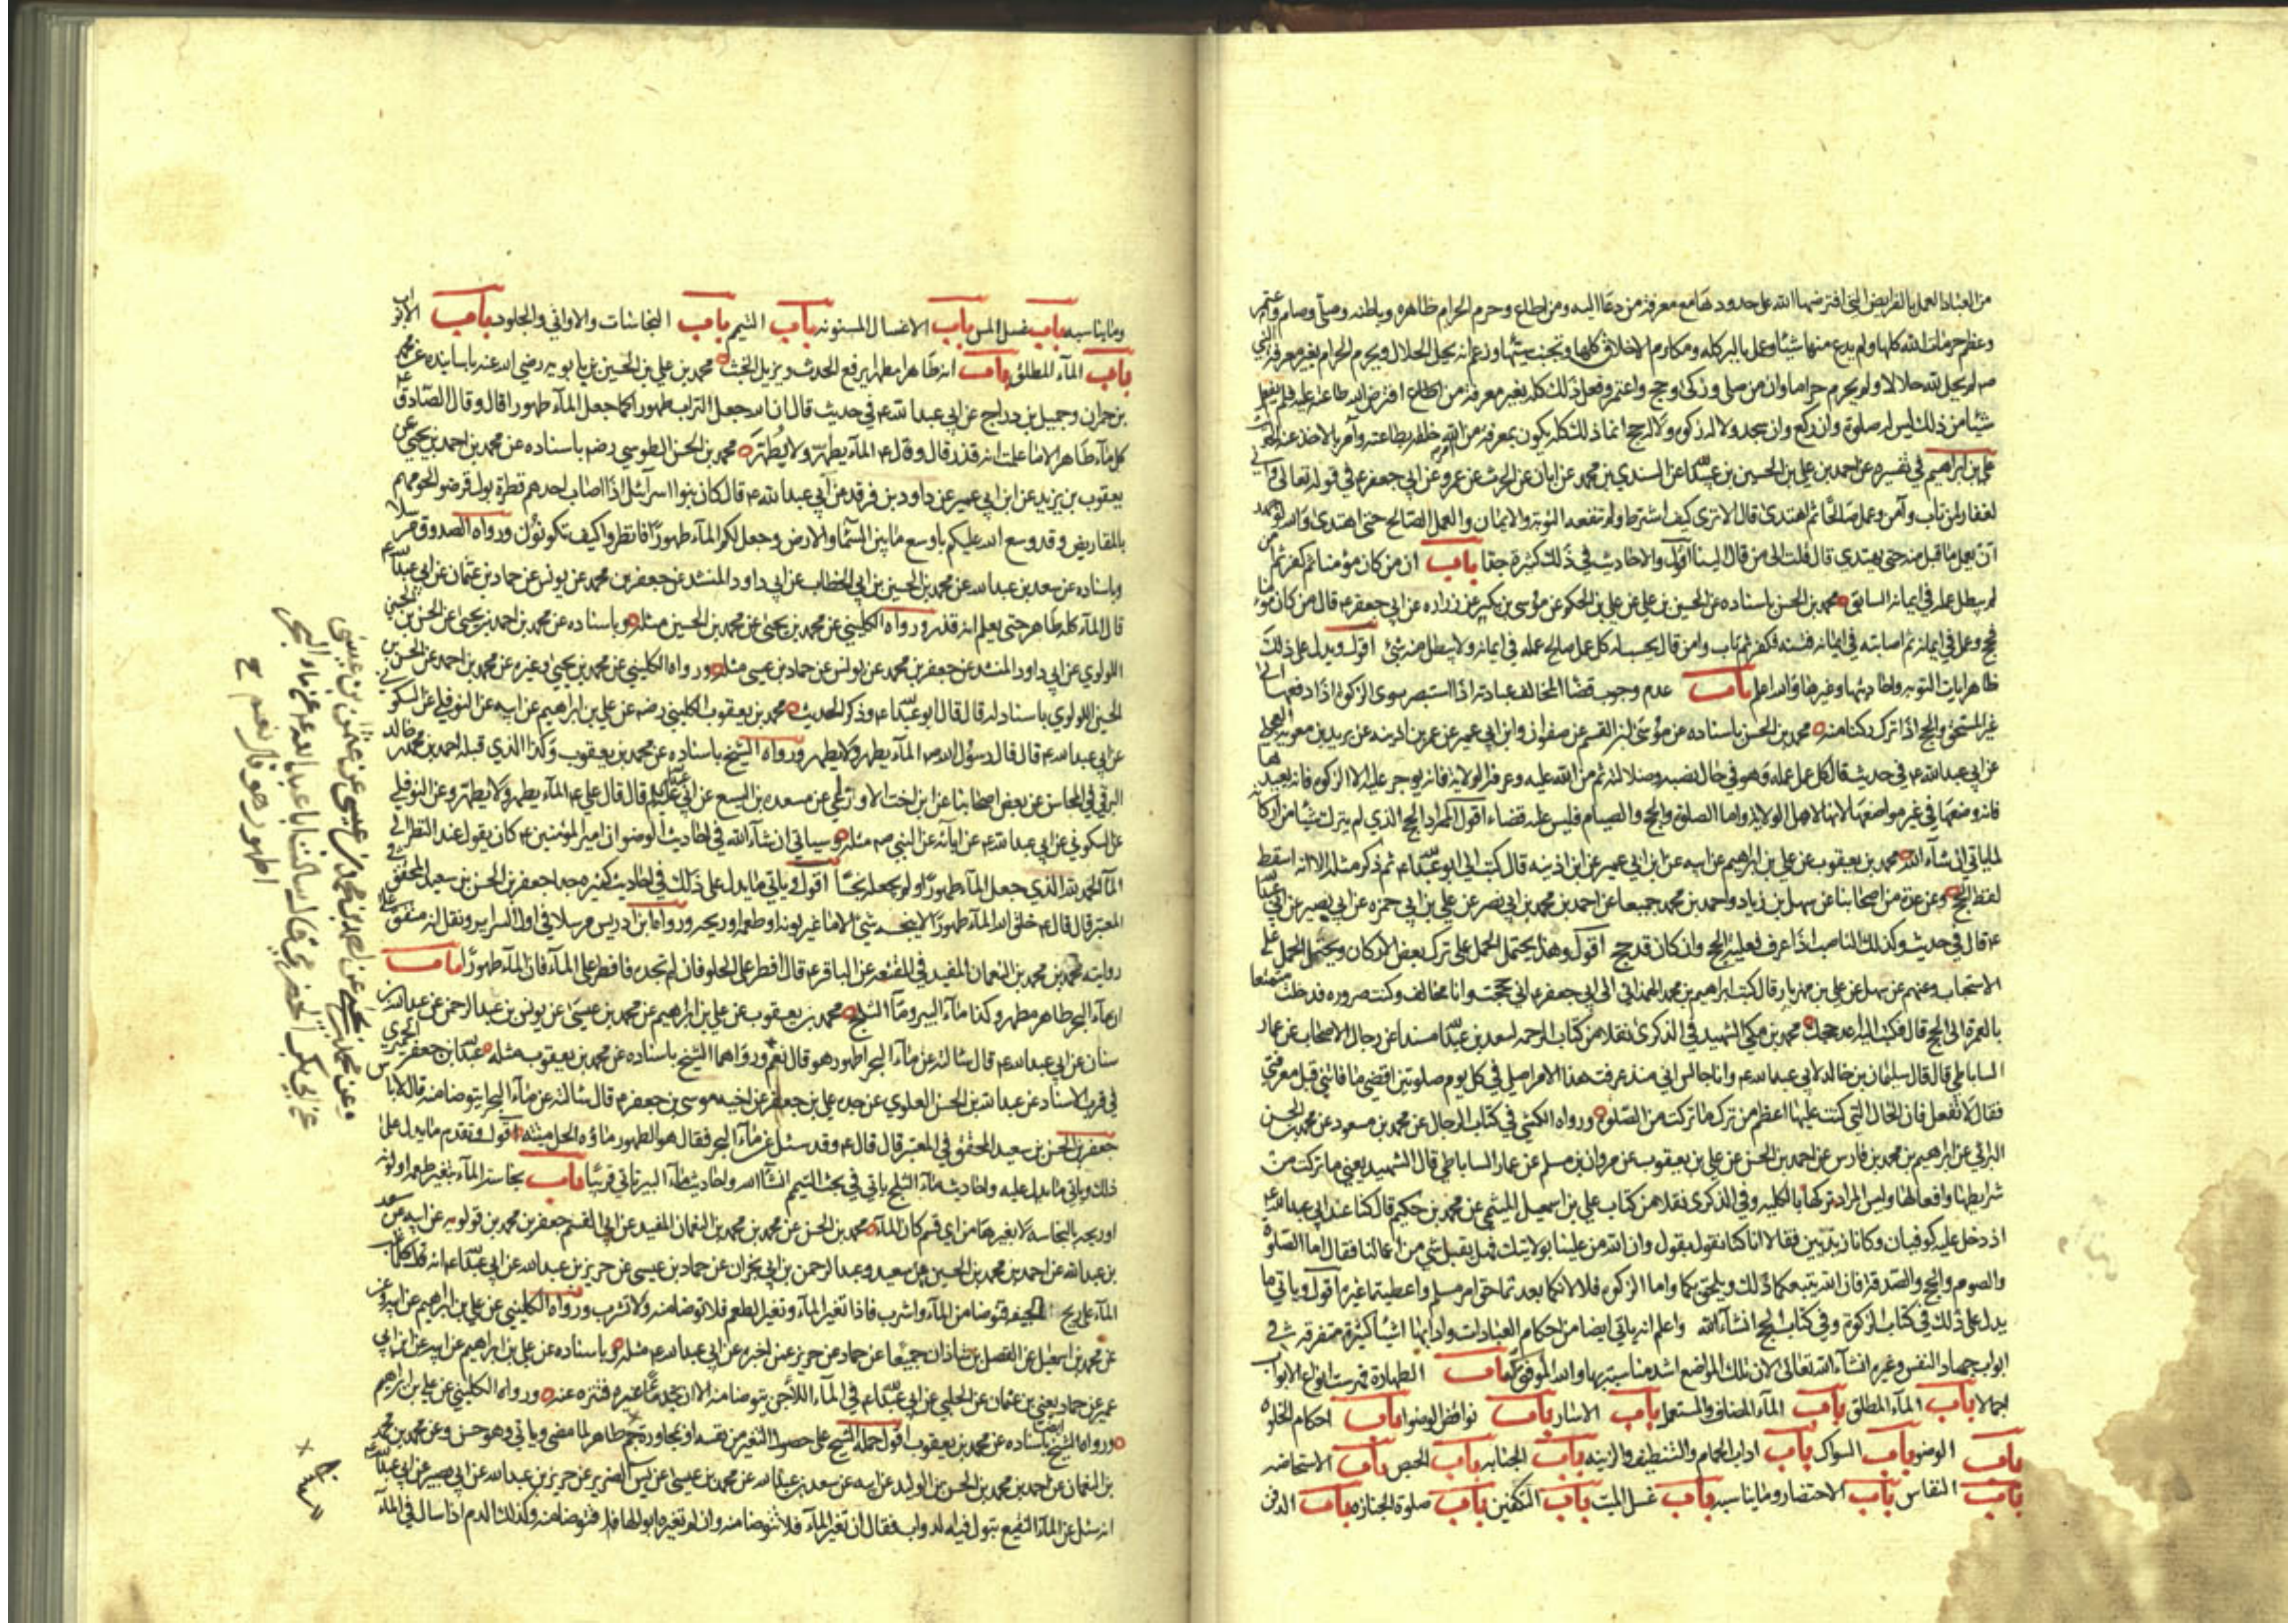 من العباد العمل بالفرايض التي افترضها الله على حدودها مع معرفة من دعا اليه ومن اطاع وحرم الحرام ظاهره وباطنه وصلى وصام واعتمر
وعظم حرمات الله كلها ولم يدع منها شيئا وعمل بالبر كله ومكارم الاخلاق كلها وتجنب سيئها وزعم انه يحل الحلال ويحرم الحرام بغير معرفة النبي
ص لم يحل لله حلالا ولم يحرم حراما وان من صلى وزكى وحج واعتمر وفعل ذلك كله بغير معرفة من افترض الله طاعته عليه فلم يقبل
شيئا من ذلك ليس له صلوة وان ركع وان سجد ولا له زكوة ولا له حج انما ذلك كله يكون بمعرفة من الله على خلقه بطاعته وامر بالاخذ عنه
علي بن ابراهيم في تفسيره عن احمد بن علي عن الحسين بن عبيدالله عن السندي بن محمد عن ابان عن الحرث عن عمرو عن ابي جعفر ع في قوله تعالى واني
لغفار لمن تاب وآمن وعمل صالحا ثم اهتدى قال الا ترى كيف اشترط ولم تنفعه التوبة والايمان والعمل الصالح حتى اهتدى والله لو جهد
ان يعمل ما قبل منه حتى يهتدى قال قلت الى من قال الينا اقول والاحاديث في ذلك كثيرة جدا باب ان من كان مؤمنا ثم كفر ثم امن
لم يبطل عمله في ايمانه السابق محمد بن الحسن باسناده عن الحسين بن علي عن علي بن الحكم عن موسى بن بكير عن زراره عن ابي جعفر ع قال من كان مؤمنا
فحج وعمل في ايمانه ثم اصابته في ايمانه فتنه فكفر ثم تاب وامن قال يحسب له كل عمل صالح عمله في ايمانه ولا يبطل منه شئ اقول ويدل على ذلك
ظاهر ايات التوبه واحاديثها وغيرها والله اعلم باب عدم وجوب قضا المخالف عبادته اذا استبصر سوى الزكوة اذا دفعها الى
غير المستحق والحج اذا ترك ركنا منه محمد بن الحسن باسناده عن موسى بن القسم عن صفوان وابن ابي عمير عن عمر بن اذينه عن بريد بن معويه العجلى
عن ابي عبدالله ع في حديث قال كل عمل عمله وهو في حال نصبه وضلالته ثم من الله عليه وعرفه الولايه فانه يوجر عليه الا الزكوة فانه يعيدها
فانه وضعها في غير مواضعها لانها لاهل الولايه واما الصلوة والحج والصيام فليس عليه قضاء اقول المراد الحج الذي لم يترك شيئا من اركانه
لما ياتي ان شآء الله محمد بن يعقوب عن علي بن ابراهيم عن ابيه عن ابن ابي عمير عن ابن اذينه قال كتب الي ابو عبدالله ع ثم ذكر مثله الا انه اسقط
لفظ الحج وعن عدة من اصحابنا عن سهل بن زياد واحمد بن محمد جميعا عن احمد بن محمد بن ابي نصر عن علي بن ابي حمزه عن ابي بصير عن ابي عبدالله
ع قال في حديث وكذلك الناصب اذا عرف فعليه الحج وان كان قد حج اقول وهذا يحتمل الحمل على ترك بعض الاركان ويحتمل الحمل على
الاستحباب وعنهم عن سهل عن علي بن مهزيار قال كتب ابراهيم بن محمد الهمداني الى ابي جعفر ع اني حججت وانا مخالف وكنت صروره فدخلت متمتعا
بالعمرة الى الحج قال فكتب اليه اعد حجك محمد بن مكي الشهيد في الذكرى نقلا من كتاب الرحمه لسعد بن عبدالله مسندا عن رجال الاصحاب عن عمار
الساباطي قال قال سليمان بن خالد لابي عبدالله ع وانا جالس اني منذ عرفت هذا الامر اصلي في كل يوم صلوتين اقضي ما فاتني قبل معرفتي
فقال لا تفعل فان الحال التي كنت عليها اعظم من ترك ما تركت من الصلوة ورواه الكشي في كتاب الرجال عن محمد بن مسعود عن محمد بن الحسن
البراثي عن ابراهيم بن محمد بن فارس عن احمد بن الحسن عن علي بن يعقوب عن مروان بن مسلم عن عمار الساباطي قال الشهيد يعني ما تركت من
شرايطها وافعالها وليس المراد تركها بالكليه وفي الذكرى نقلا من كتاب علي بن اسمعيل الميثمي عن محمد بن حكيم قال كنا عند ابي عبدالله ع
اذ دخل عليه كوفيان وكانا زيديين فقالا انا كنا نقول بقول وان الله من علينا بولايتك فهل يقبل شي من اعمالنا فقال اما الصلوة
والصوم والحج والصدقة فان الله يتبعكما ذلك ويلحق بكما واما الزكوة فلا لانكما بعدتما حق امرء مسلم واعطيتماه غيره اقول وياتي ما
يدل على ذلك في كتاب الزكوة وفي كتاب الحج انشاء الله واعلم انه ياتي ايضا من احكام العبادات وادابها اشيا كثيرة متفرقه في
ابواب جهاد النفس وغيره انشآء الله تعالى لان تلك المواضع اشد مناسبة بها والله الموفق كتاب الطهارة فهرست انواع الابواب
اجمالا باب المآء المطلق باب المآء المضاف والمستعمل باب الاسار باب نواقض الوضوا باب احكام الخلوة
باب الوضو باب السواك باب اداب الحمام والتنظيف والزينه باب الجنابه باب الحيض باب الاستحاضه
باب النفاس باب الاحتضار وما يناسبه باب غسل الميت باب التكفين باب صلوة الجنازه باب الدفن
وما يناسبه باب غسل المس باب الاغسال المسنونه باب التيمم باب النجاسات والاواني والجلود باب الابواب
باب المآء المطلق باب انه طاهر مطهر يرفع الحدث ويزيل الخبث محمد بن علي بن الحسين بن بابويه رضي الله عنه باسانيده عن محمد
بن حمران وجميل بن دراج عن ابي عبدالله ع في حديث قال ان الله جعل التراب طهورا كما جعل المآء طهورا قال وقال الصادق ع
كل مآء طاهر الا ما علمت انه قذر قال وقال ع المآء يطهر ولا يطهر محمد بن الحسن الطوسي رضه باسناده عن محمد بن احمد بن يحيى عن
يعقوب بن يزيد عن ابن ابي عمير عن داود بن فرقد عن ابي عبدالله ع قال كان بنوا اسرآئيل اذا اصاب احدهم قطرة بول قرضوا لحومهم
بالمقاريض وقد وسع الله عليكم باوسع ما بين السمآء والارض وجعل لكم المآء طهورا فانظروا كيف تكونون ورواه الصدوق مرسلا
وباسناده عن سعد بن عبدالله عن محمد بن الحسين بن ابي الخطاب عن ابي داود المنشد عن جعفر بن محمد عن يونس عن حماد بن عثمان عن ابي عبدالله ع
قال المآء كله طاهر حتى يعلم انه قذر ورواه الكليني عن محمد بن يحيى عن محمد بن الحسين مثله وباسناده عن محمد بن احمد بن يحيى عن الحسن بن الحسين
اللولوي عن ابي داود المنشد عن جعفر بن محمد عن يونس عن حماد بن عيسى مثله ورواه الكليني عن محمد بن يحيى وغيره عن محمد بن احمد عن الحسن بن
الحسين اللولوي باسناد له قال قال ابو عبدالله ع وذكر الحديث محمد بن يعقوب الكليني رضه عن علي بن ابراهيم عن ابيه عن النوفلي عن السكوني
عن ابي عبدالله ع قال قال رسول الله ص المآء يطهر ولا يطهر ورواه الشيخ باسناده عن محمد بن يعقوب وكذا الذي قبله احمد بن محمد بن خالد
البرقي في المحاسن عن بعض اصحابنا عن ابن اخت الاوزاعي عن مسعده بن اليسع عن ابي عبدالله ع قال قال علي ع المآء يطهر ولا يطهر وعن النوفلي
عن السكوني عن ابي عبدالله ع عن ابائه عن النبي ص مثله وسياتي ان شآء الله في احاديث الوضوا ان امير المؤمنين ع كان يقول عند النظر الى
المآء الحمد لله الذي جعل المآء طهورا ولم يجعله نجسا اقول وياتي ما يدل على ذلك في احاديث كثيره جعفر بن الحسن بن سعيد المحقق في
المعتبر قال قال ع خلق الله المآء طهورا لا ينجسه شئ الا ما غير لونه او طعمه او ريحه ورواه ابن ادريس مرسلا في اول السراير ونقل انه متفق على
روايته محمد بن محمد بن النعمان المفيد في المقنعه عن الباقر ع قال افطر على الحلو فان لم تجده فافطر على المآء فان المآء طهور باب
ان مآء البحر طاهر مطهر وكذا مآء البير ومآء الثلج محمد بن يعقوب عن علي بن ابراهيم عن محمد بن عيسى عن يونس بن عبدالرحمن عن عبدالله بن
سنان عن ابي عبدالله ع قال سالته عن مآء البحر اطهور هو قال نعم ورواهما الشيخ باسناده عن محمد بن يعقوب مثله عبدالله بن جعفر الحميري
في قرب الاسناد عن عبدالله بن الحسن العلوي عن جده علي بن جعفر عن اخيه موسى بن جعفر ع قال سالته عن مآء البحر ايتوضا منه قال لا باس
جعفر بن الحسن بن سعيد المحقق في المعتبر قال قال ع وقد سئل عن مآء البحر فقال هو الطهور ماؤه الحل ميتته اقول وتقدم ما يدل على
ذلك وياتي ما يدل عليه واحاديث مآء الثلج ياتي في بحث التيمم انشآء الله واحاديث مآء البير تاتي قريبا باب نجاسة المآء بتغير طعمه او لونه
او ريحه بالنجاسه لا بغيرها من اي قسم كان المآء محمد بن الحسن عن محمد بن محمد بن النعمان المفيد عن ابي القسم جعفر بن محمد بن قولويه عن ابيه عن سعد
بن عبدالله عن احمد بن محمد عن الحسين بن سعيد وعبدالرحمن بن ابي نجران عن حماد بن عيسى عن حريز بن عبدالله عن ابي عبدالله ع انه قال كلما غلب
المآء على ريح الجيفه فتوضا من المآء واشرب فاذا تغير المآء وتغير الطعم فلا توضا منه ولا تشرب ورواه الكليني عن علي بن ابراهيم عن ابيه وعن
عن محمد بن اسمعيل عن الفضل بن شاذان جميعا عن حماد عن حريز عمن اخبره عن ابي عبدالله ع مثله وباسناده عن علي بن ابراهيم عن ابيه عن ابن ابي
عمير عن حماد يعني بن عثمان عن الحلبي عن ابي عبدالله ع في المآء الاجن يتوضا منه الا ان تجد مآء غيره فتنزه عنه ورواه الكليني عن علي بن ابراهيم
ورواه الشيخ باسناده عن محمد بن يعقوب اقول حمله الشيخ على حصول التغير من نفسه او بمجاورة جسم طاهر لما مضى وياتي وهو حسن وعن محمد بن محمد
بن النعمان عن احمد بن محمد بن الحسن بن الوليد عن ابيه عن سعد بن عبدالله عن محمد بن عيسى عن يس الضرير عن حريز بن عبدالله عن ابي بصير عن ابي عبدالله ع
انه سئل عن المآء النقيع تبول فيه الدواب فقال ان تغير المآء فلا تتوضا منه وان لم تغيره ابوالها فتوضا منه وكذلك الدم اذا سال في المآء
وعن محمد بن يحيى عن احمد بن محمد بن عيسى عن عثمن بن عيسى
عن ابي بكر الحضرمي قال سالت ابا عبدالله ع عن ماء البحر
اطهور هو قال نعم